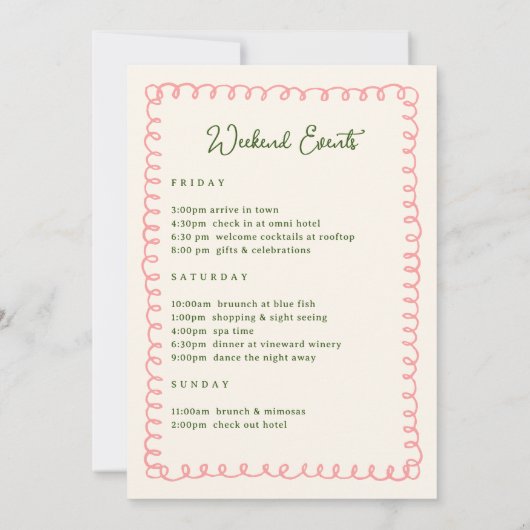 Weekend Events
FRIDAY
3:00pm arrive in town
4:30pm check in at omni hotel
6:30 pm welcome cocktails at rooftop
8:00 pm gifts & celebrations
SATURDAY
10:00am bruunch at blue fish
1:00pm shopping & sight seeing
4:00pm spa time
6:30pm dinner at vineward winery
9:00pm dance the night away
SUNDAY
11:00am brunch & mimosas
2:00pm check out hotel